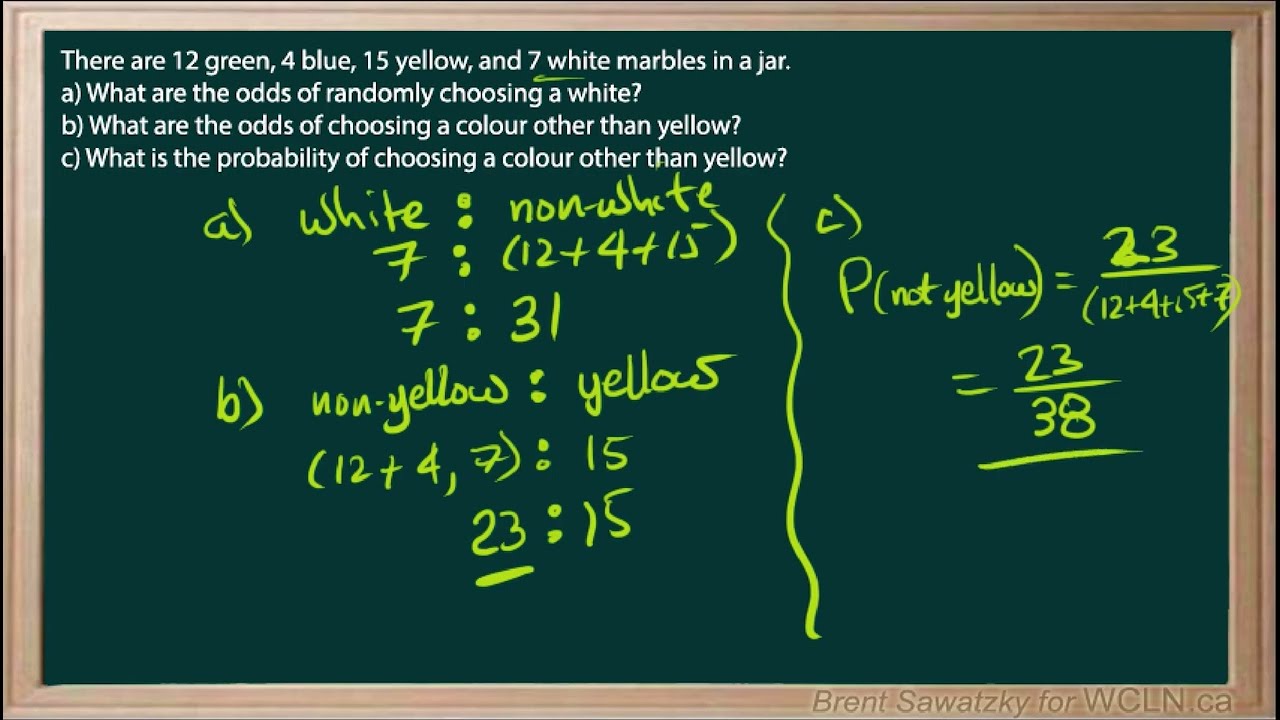 There are 12 green, 4 blue, 15 yellow, and 7 white marbles in a jar.
a) What are the odds of randomly choosing a white?
b) What are the odds of choosing a colour other than yellow?
c) What is the probability of choosing a colour other than yellow?
a) white : non-white
7 : (12+4+15)
7 : 31
b) non-yellow : yellow
(12+4, 7) : 15
23 : 15
c)
P(not yellow) = 23/(12+4+15+7)
= 23/38
Brent Sawatzky for WCLN.ca